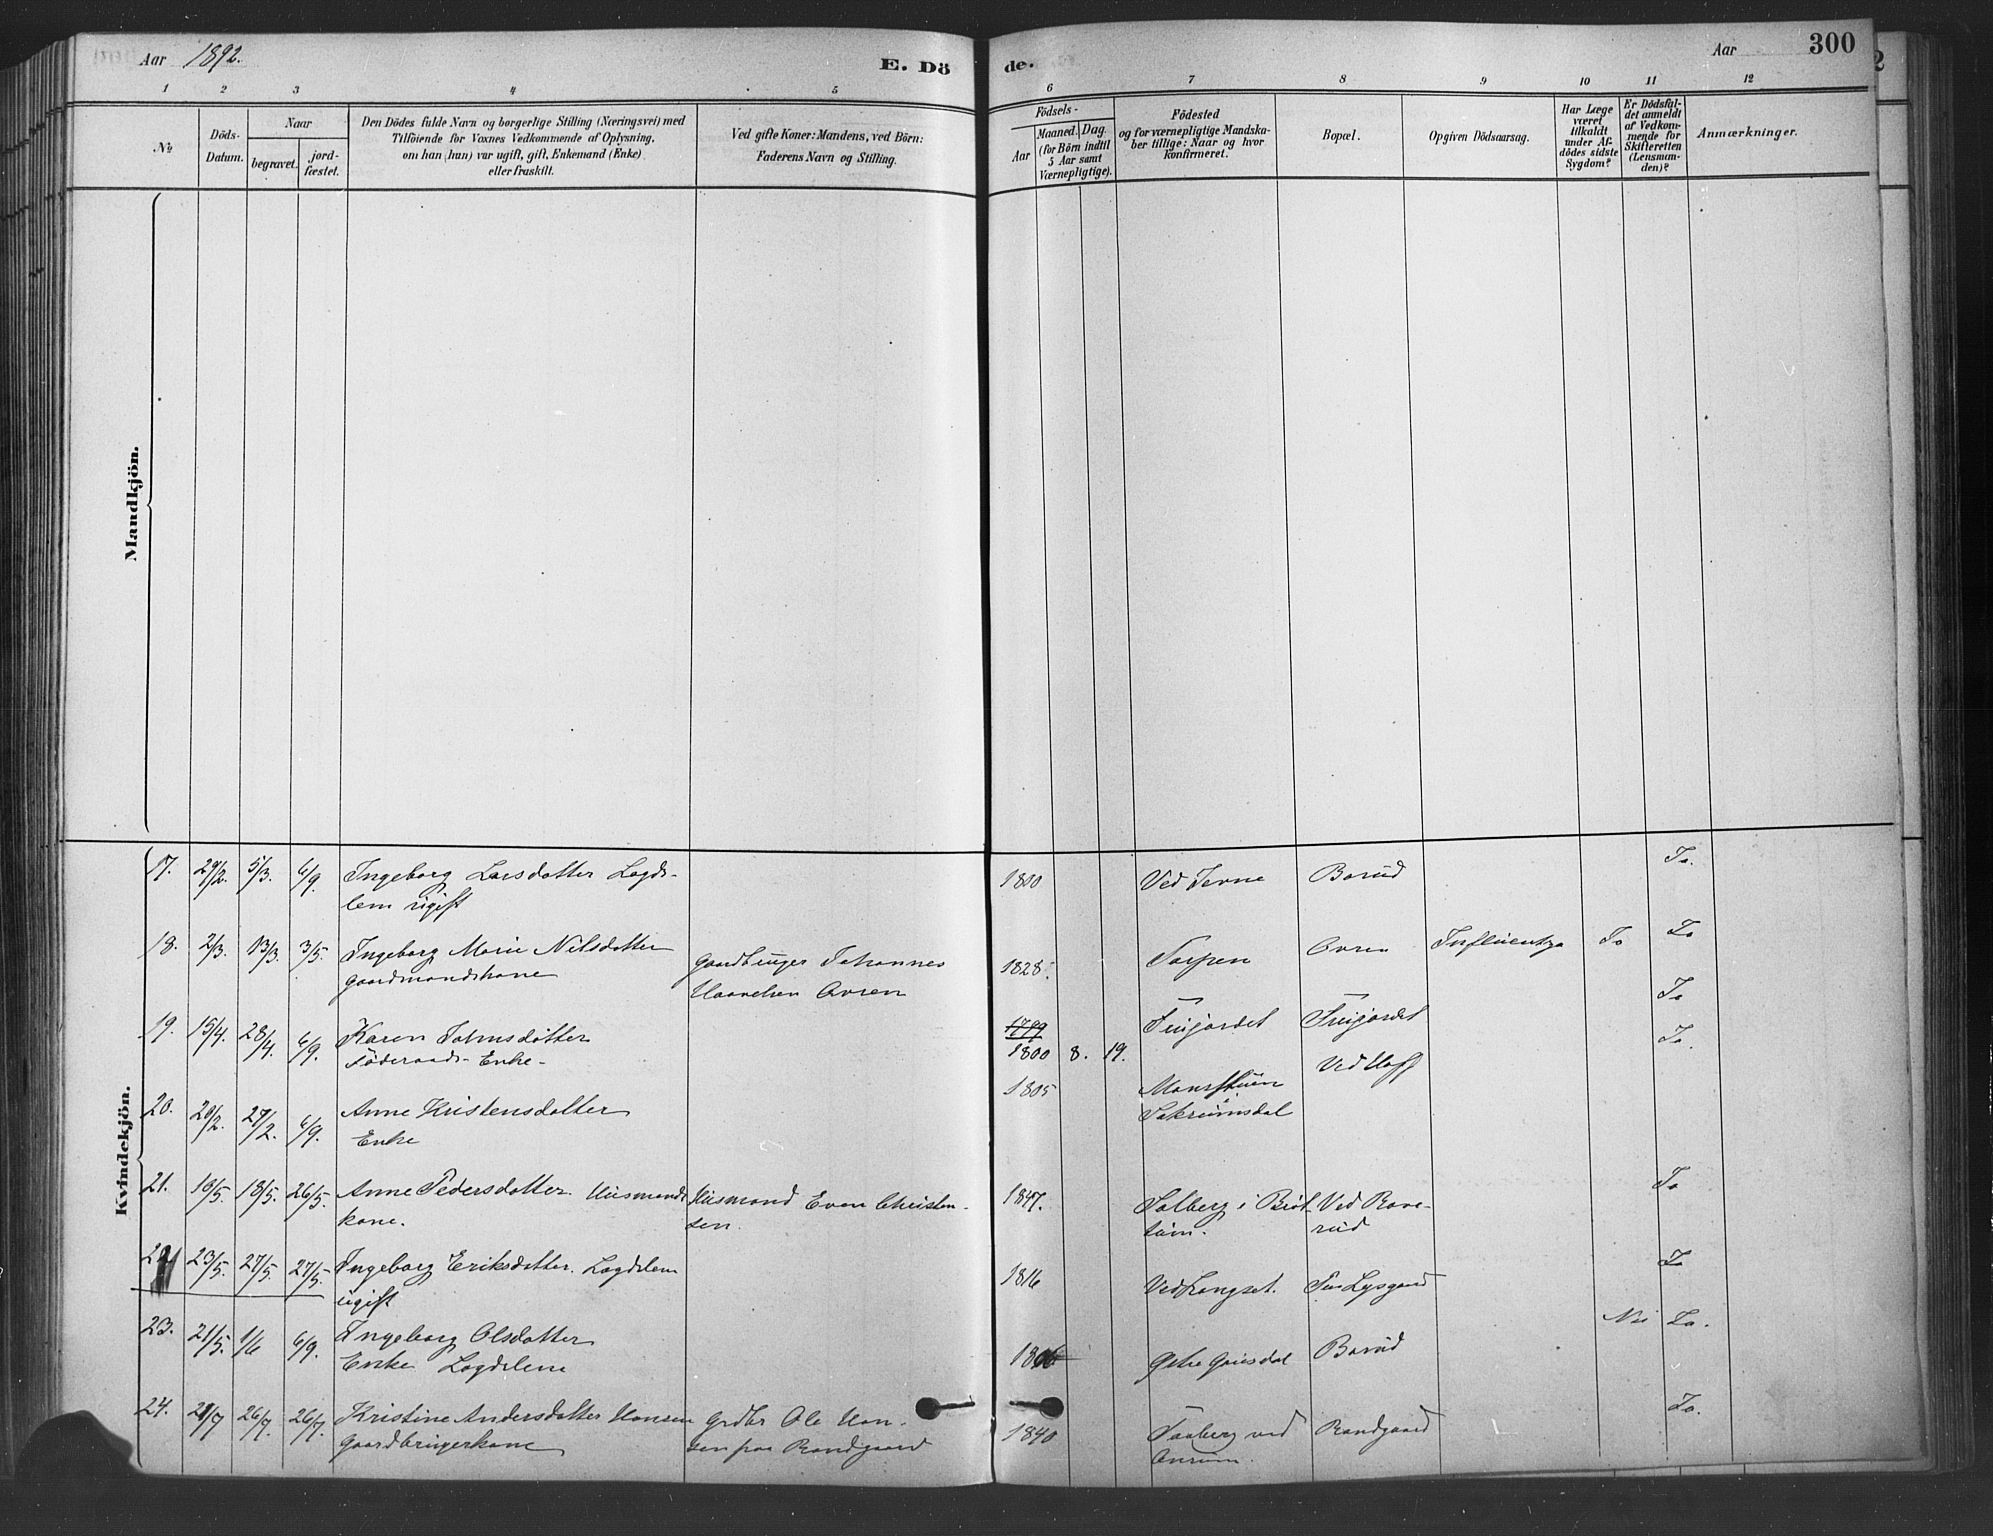 Aar 1892.
E. Dö
de.
Aar
300
1 2 3 4 5 6 7 8 9 10 11 12
№
Döds-
Datum.
Naar
begravet.
jord-
fæstet.
Den Dödes fulde Navn og borgerlige Stilling (Næringsvei) med
Tilföiende for Voxnes Vedkommende af Oplysning,
om han (hun) var ugift, gift, Enkemand (Enke)
eller fraskilt.
Ved gifte Koner: Mandens, ved Börn:
Faderens Navn og Stilling.
Födsels-
Aar
Maaned. Dag.
(for Börn indtil
5 Aar samt
Værnepligtige).
Födested
og for værnepligtige Mandska-
ber tillige: Naar og hvor
konfirmeret.
Bopæl.
Opgiven Dödsaarsag.
Har Læge
været
tilkaldt
under Af-
dödes sidste
Sygdom?
Er Dödsfal-
det anmeldt
af Vedkom-
mende for
Skifteretten
(Lensman-
den)?
Anmærkninger.
Mandkjön.
Kvindekjön.
17. 29/2. 5/3. 6/9. Ingeborg Larsdatter Logds-
lem ugift
1800 Ved Borud Ja.
18. 2/3. 13/3. 3/5. Ingeborg Marie Nilsdatter
gaardmandskone
gaardbruger Johannes
Haavelsen Ovren
1828. Torpen Ovren Influentza Ja Ja
19. 15/4. 28/4. 6/9. Karen Johnsdatter
Föderaads-Enke.
1799
1800 8. 19. Ja
20. 20/2. 27/2. 6/9. Anne Kristensdatter
Enke
1805 Ved Hoff Ja.
21. 10/5. 18/5. 26/5. Anne Pedersdatter. Husmands
kone.
Husmand Even Christen-
sen.
1847. Solberg i Bröt-
tum. Ved Ja
22 23/5. 27/5. 27/5. Ingeborg Eriksdatter. Logdslem
ugift
1816 Ved Langset. Lysgaard Ja
23. 21/5. 1/6 6/9. Ingeborg Olsdatter
Enke Logdslem
Gausdal Borud Nei Ja.
24. 21/7 26/7. 26/7. Kristine Andersdatter Hansen
gaardbrugerkone
Grdbr Ole Han-
sen paa Randgaard
1840 Faaberg ved
Randgaard Ja.